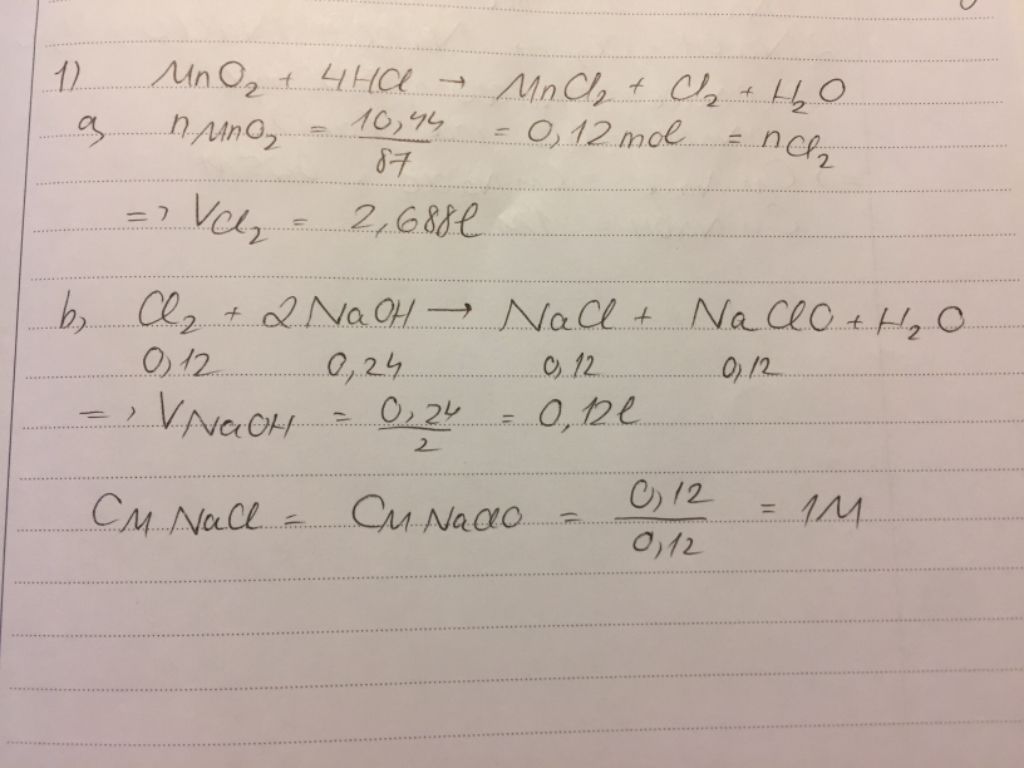 1) MnO₂ + 4HCl → MnCl₂ + Cl₂ + H₂O
a, nMnO₂ = 10,44/87 = 0,12 mol = nCl₂
=> VCl₂ = 2,688l
b, Cl₂ + 2NaOH → NaCl + NaClO + H₂O
0,12 0,24 0,12 0,12
=> VNaOH = 0,24/2 = 0,12l
CM NaCl = CM NaClO = 0,12/0,12 = 1M